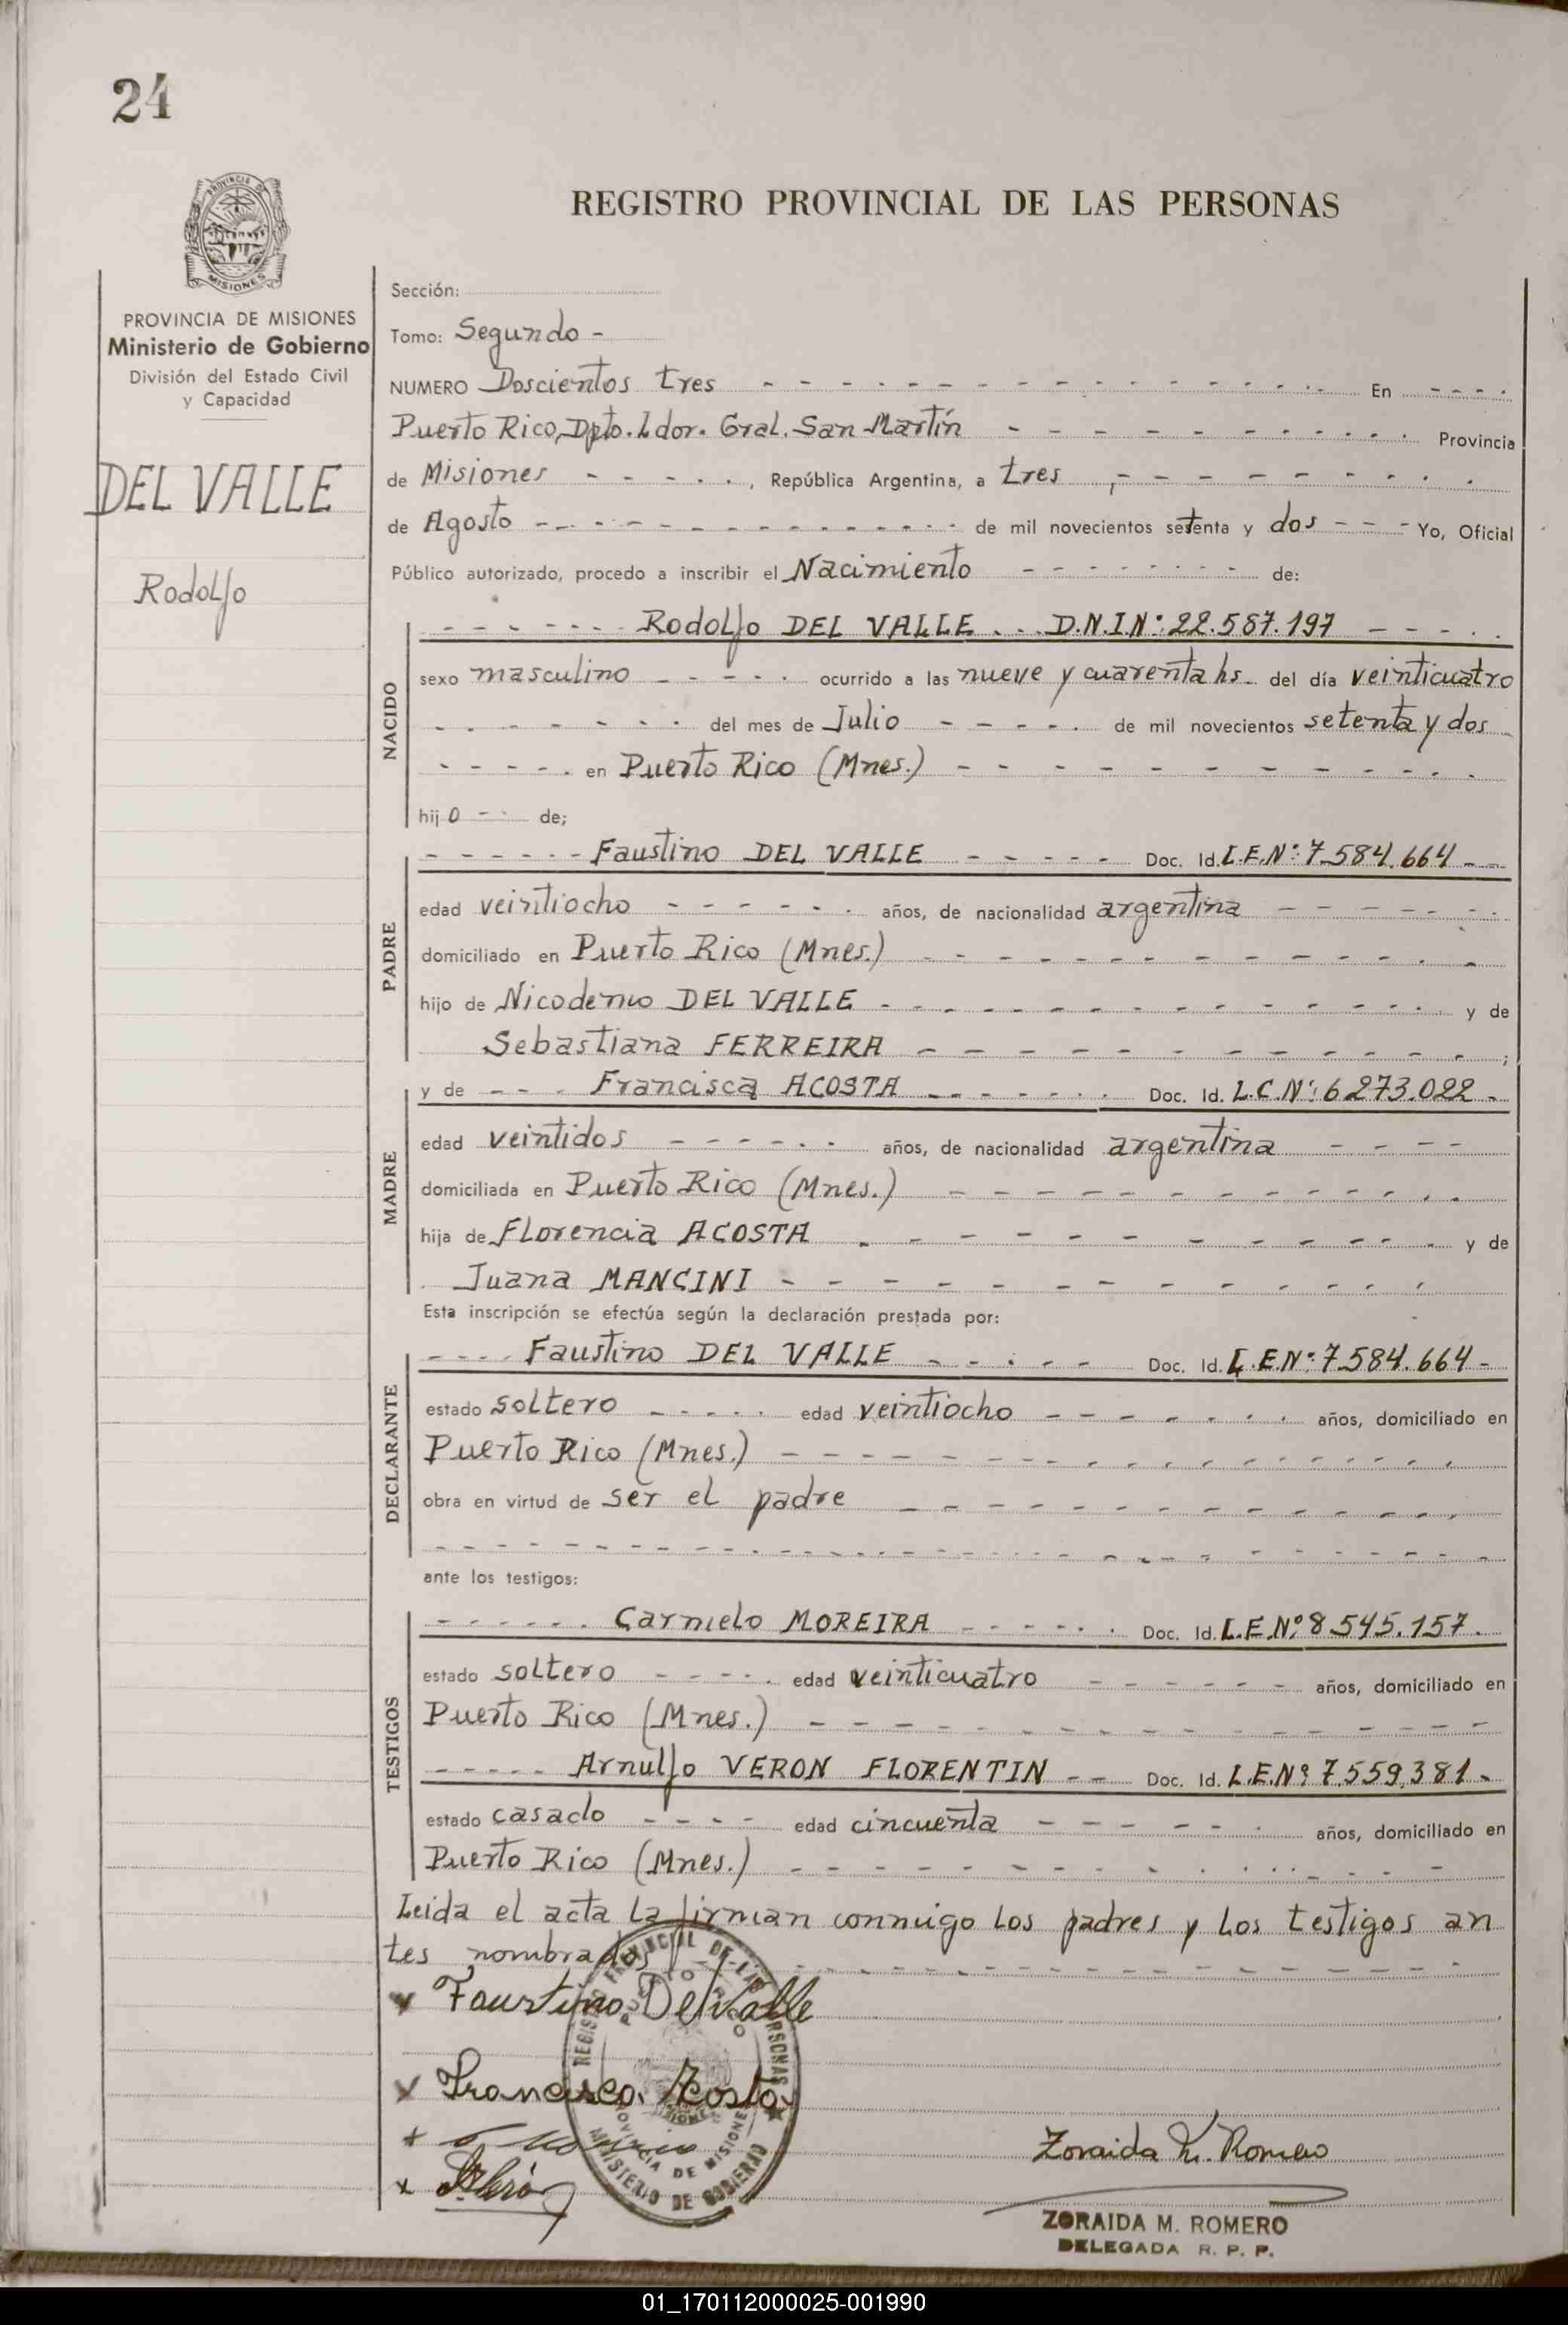 24
PROVINCIA DE
MISIONES
REGISTRO PROVINCIAL DE LAS PERSONAS
PROVINCIA DE MISIONES
Ministerio de Gobierno
División del Estado Civil
y Capacidad
DEL VALLE
Rodolfo
Sección:
Tomo: Segundo -
NUMERO Doscientos tres - - - En - - -
Puerto Rico, Dpto. Ldor. Gral. San Martín - - - Provincia
de Misiones - - - , República Argentina, a tres - - -
de Agosto - - - de mil novecientos setenta y dos - - - Yo, Oficial
Público autorizado, procedo a inscribir el Nacimiento - - - de:
- - - Rodolfo DEL VALLE - - - D.N.I Nº: 22.587.197 - - -
NACIDO
sexo masculino - - - ocurrido a las nueve y cuarenta hs. del día veinticuatro
- - - del mes de Julio - - - de mil novecientos setenta y dos
- - - en Puerto Rico (Mnes.) - - -
hijo - - de;
- - - Faustino DEL VALLE - - - Doc. Id. L.E.Nº: 7.584.664 - -
PADRE
edad veintiocho - - - años, de nacionalidad argentina - - -
domiciliado en Puerto Rico (Mnes.) - - -
hijo de Nicodemo DEL VALLE - - - y de
Sebastiana FERREIRA - - - ;
y de - - - Francisca ACOSTA - - - Doc. Id. L.C.Nº: 6.273.022 -
MADRE
edad veintidos - - - años, de nacionalidad argentina - - -
domiciliada en Puerto Rico (Mnes.) - - -
hija de Florencia ACOSTA - - - y de
Juana MANCINI - - -
Esta inscripción se efectúa según la declaración prestada por:
- - - Faustino DEL VALLE - - - Doc. Id. L.E.Nº: 7.584.664 -
DECLARANTE
estado soltero - - - edad veintiocho - - - años, domiciliado en
Puerto Rico (Mnes.) - - -
obra en virtud de ser el padre - - -
ante los testigos:
- - - Carmelo MOREIRA - - - Doc. Id. L.E.Nº: 8.545.157.
TESTIGOS
estado soltero - - - edad veinticuatro - - - años, domiciliado en
Puerto Rico (Mnes.) - - -
- - - Arnulfo VERON FLORENTIN - - Doc. Id. L.E.Nº: 7.559.381 -
estado casado - - - edad cincuenta - - - años, domiciliado en
Puerto Rico (Mnes.) - - -
Leida el acta la firman conmigo los padres y los testigos an
tes nombrados - - -
x Faustino Del Valle
x Francisca Acosta
REGISTRO PROVINCIAL DE LAS PERSONAS
PUERTO RICO
PROVINCIA DE MISIONES
MINISTERIO DE GOBIERNO
Zoraida M. Romero
ZORAIDA M. ROMERO
DELEGADA R. P. P.
01_170112000025-001990